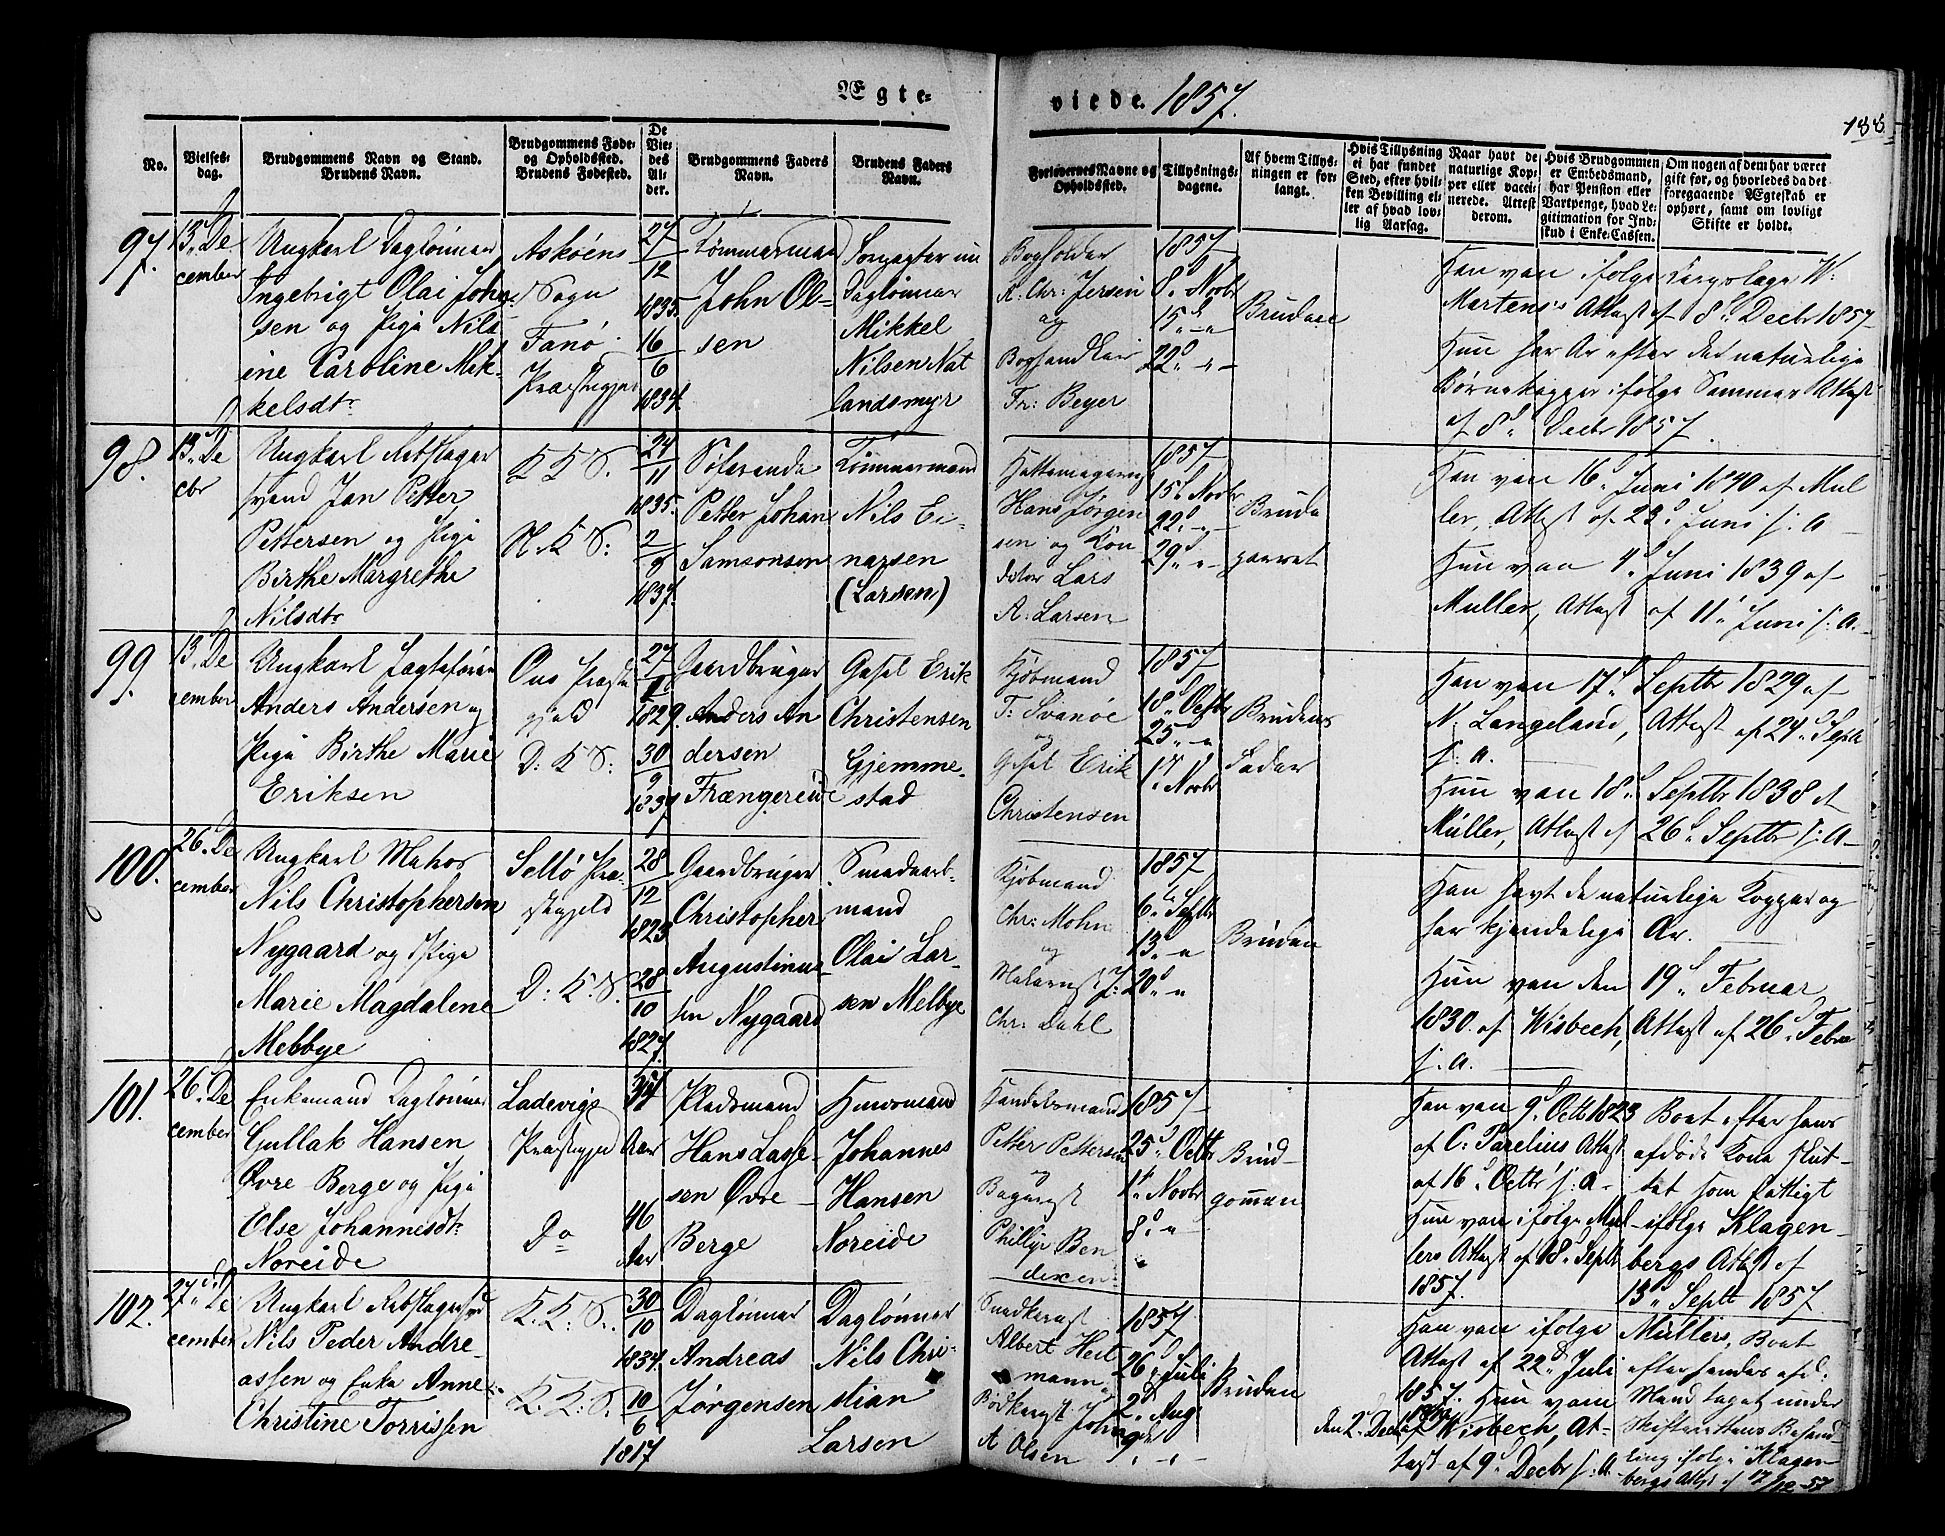 Ægte-
viede. 1857.
188
No.
Vielses-
dag.
Brudgommens Navn og Stand.
Brudens Navn.
Brudgommens Føde-
og Opholdssted.
Brudens Fødested.
De
Vie-
des
Al-
der.
Brudgommens Faders
Navn.
Brudens Faders
Navn.
Forlovernes Navne og
Opholdssted.
Tillysnings-
dagene.
Af hvem Tillys-
ningen er for-
langt.
Hvis Tillysning
ei har fundet
Sted, efter hvil-
ken Bevilling el-
ler af hvad lov-
lig Aarsag.
Naar havt de
naturlige Kop-
per eller vacci-
nerede. Attest
derom.
Hvis Brudgommen
er Embedsmand,
har Pension eller
Vartpenge, hvad Le-
gitimation for Ind-
skud i Enke-Cassen.
Om nogen af dem har været
gift før, og hvorledes da det
foregaaende Ægteskab er
ophørt, samt om lovligt
Skifte er holdt.
97.
13. De
cember
Ungkarl Daglønnar
Ingebrigt Olai John-
sen og Pige Nils
ine Caroline Mik-
kelsdtr
Askøens
Sogn
Fanø
Præstegjel
27
12
1835.
16
6
1834.
Tømmermand
John Ol-
sen
Daglønnar
Mikkel
Nilsen Nat
landsmyr
Bogholder
A. Chr: Jersin
og
Boghandler
Fr: Beyer
1857
8d Novbr
15d "
22d "
Bruden
Han van ifølge Corpslæge W:
Martens's Attest af 8d Decbr 1857
Hun har Ar efter de naturlige
Børnekopper ifølge Samme Attest
af 8d Decbr 1857.
98.
13. De
cbr
Ungkarl Rebslager
svend Jan Petter
Pettersen og Pige
Birthe Margrethe
Nilsdtr
K K S.
N. K S:
24
11
1835.
2
9
1837.
Søfarende
Petter Johan
Samsonsen
Tømmermand
Nils Ei-
narsen
(Larsen)
Hattemagerny
Hans Jørgen
sen og Kon
ditor Lars
A: Larsen
1857
15d Novbr
22d "
29d "
Brude
parret
Han van 16d Juni 1840 af Mül
ler, Attest af 23d Juni s: A
Hun van 4d Juni 1839 af
Müller, Attest af 11d Juni s: A.
99.
13. De
cember
Ungkarl Jagtefører
Anders Andersen og
Pige Birthe Marie
Eriksen
Ous Præste
gjeld
D: K S:
27
1829.
30
9
1837
Gaardbruger
Anders An
dersen
Frængereide
Gesel Erik
Christensen
Gjemme-
stad
Kjøbmand
T: Svanøe
og
Gesel Erik
Christensen
1857
18d Octbr
25d "
1d Novbr
Brudens
Fader
Han van 17d Septbr 1829 af
N: Langeland, Attest af 24d Septb
s: a.
Hun van 18d Septbr 1838 af
Müller, Attest af 26d Septbr s: A
100.
26. De
cember
Ungkarl Matros
Nils Christophersen
Nygaard og Pige
Marie Magdalene
Mebbye
Sellø Præ-
stegjeld
D: K. S.
28
12
1823
28
10
1827.
Gaardbruger
Christopher
Augustinus-
sen Nygaard
Smedearb-
mand
Olai Lar-
sen Melbye
Kjøbmand
Chr: Mohn
og
Malersvst J:
Chr: Dahl
1857
6d Septbr
13d "
20d "
Bruden
Han havt de naturlige Kopper og
har kjendelige Ar.
Hun van den 19d Februar
1830 af Wisbech, Attest af 26d Febru
s: a.
101.
26. De
cember
Enkemand Daglønner
Gullak Hansen
Øvre Berge og Pige
Else Johannesdtr
Noreide
Ladevigs
Præstegjeld
Do
Aar
46
Aar
Pladsmand
Hans Lasse-
sen Øvre
Berge
Huusmand
Johannes
Hansen
Noreide
Handelsmand
Petter Pettersen
og
Bagersvst
Phillip Ben
dixen
1857
25d Octbr
1d Novbr
8d "
Brud-
gommen
Han van 9d Octbr 1823
af C: Parelius Attest
af 16d Octbr s: A
Hun van ifølge Mül-
lers Attest af 18d Septbr
1857.
Boet efter hans
afdøde Kone slut-
tet som fattigt
ifølge Klagen-
bergs Attest af
13d Septb 1857.
102.
27. De
cember
Ungkarl Rebslagersvd
Nils Peder Andre-
assen og Enke Anne
Christine Torrissen
K. K: S.
K. K: S.
30
10
1834.
10
6
1817
Daglønner
Andreas
Jørgensen
Daglønner
Nils Chri-
stian
Larsen
Snedkersvst
Albert Heit-
mann
Bødkersvst John
A Olsen
1857
26d Juli
2d Aug
9d "
Bruden
Han van ifølge Müllers
Attest af 22d Juli
1857. Hun van
den 2d Decbr af Wisbech, At-
test af 9d Decbr s: A
Boet
efter hendes afd:
Mand taget under
Skifterettens Behand
ling ifølge Klagen-
bergs Attest af 17/12 57